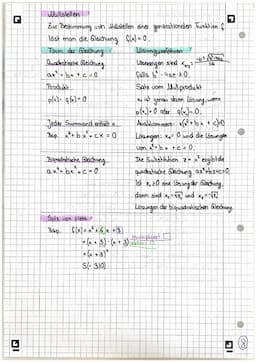 Nullstellen
Zur Bestimmung von Nullstellen einer ganzrationalen Funktion f
löst man die Gleichung f(x) = 0.
Form der Gleichung
Lösungsverfahren
Quadratische Gleichung
ax² + bx + c = 0
Lösungen sind
falls b² - 4ac ≥ 0.
Produkt
p(x) · q(x) = 0
Satz vom Nullprodukt
xᵢ ist genau dann Lösung, wenn
p(xᵢ) = 0 oder q(xᵢ) = 0.
Jeder Summand enthält x.
Bsp. x³ + bx² + cx = 0
Ausklammern: x(x² + bx + c) = 0
Lösungen: x₁ = 0 und die Lösungen
von x² + bx + c = 0.
Biquadratische Gleichung
ax⁴ + bx² + c = 0
Die Substitution z = x² ergibt die
quadratische Gleichung az² + bz + c = 0.
Ist z₁ ≥ 0 eine Lösung der Gleichung,
dann sind x₁ = √z₁ und x₂ = -√z₁
Lösungen der biquadratischen Gleichung.
Satz von Vieta
Bsp. f(x) = x² + 6x + 9
= (x + 3) · (x + 3)
= (x + 3)²
S(-3|0)